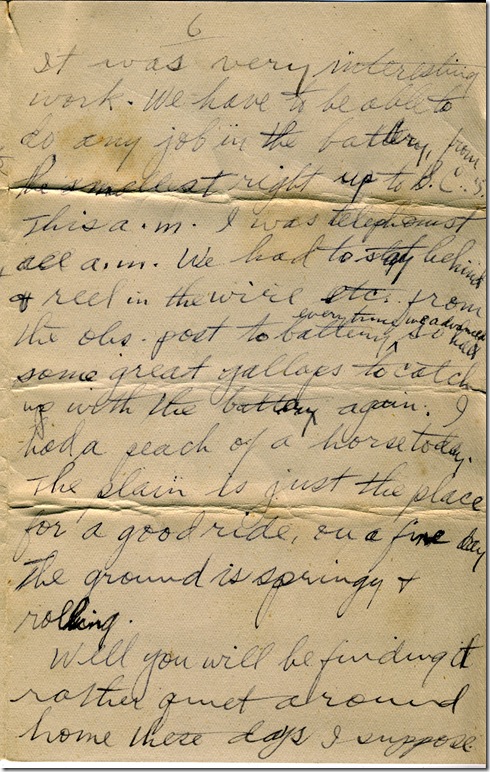 6
It was very interesting
work. We have to be able to
do any job in the battery, from
the smallest right up to B.C.'s.
This a.m. I was telephonist
all a.m. We had to stay behind
& reel in the wire etc. from
the obs. post to battery everytime we advanced so had
some great gallops to catch
up with the battery again. I
had a peach of a horse today.
The plain is just the place
for a good ride, on a fine day
the ground is springy &
rolling.
Well you will be finding it
rather quiet around
home these days I suppose.